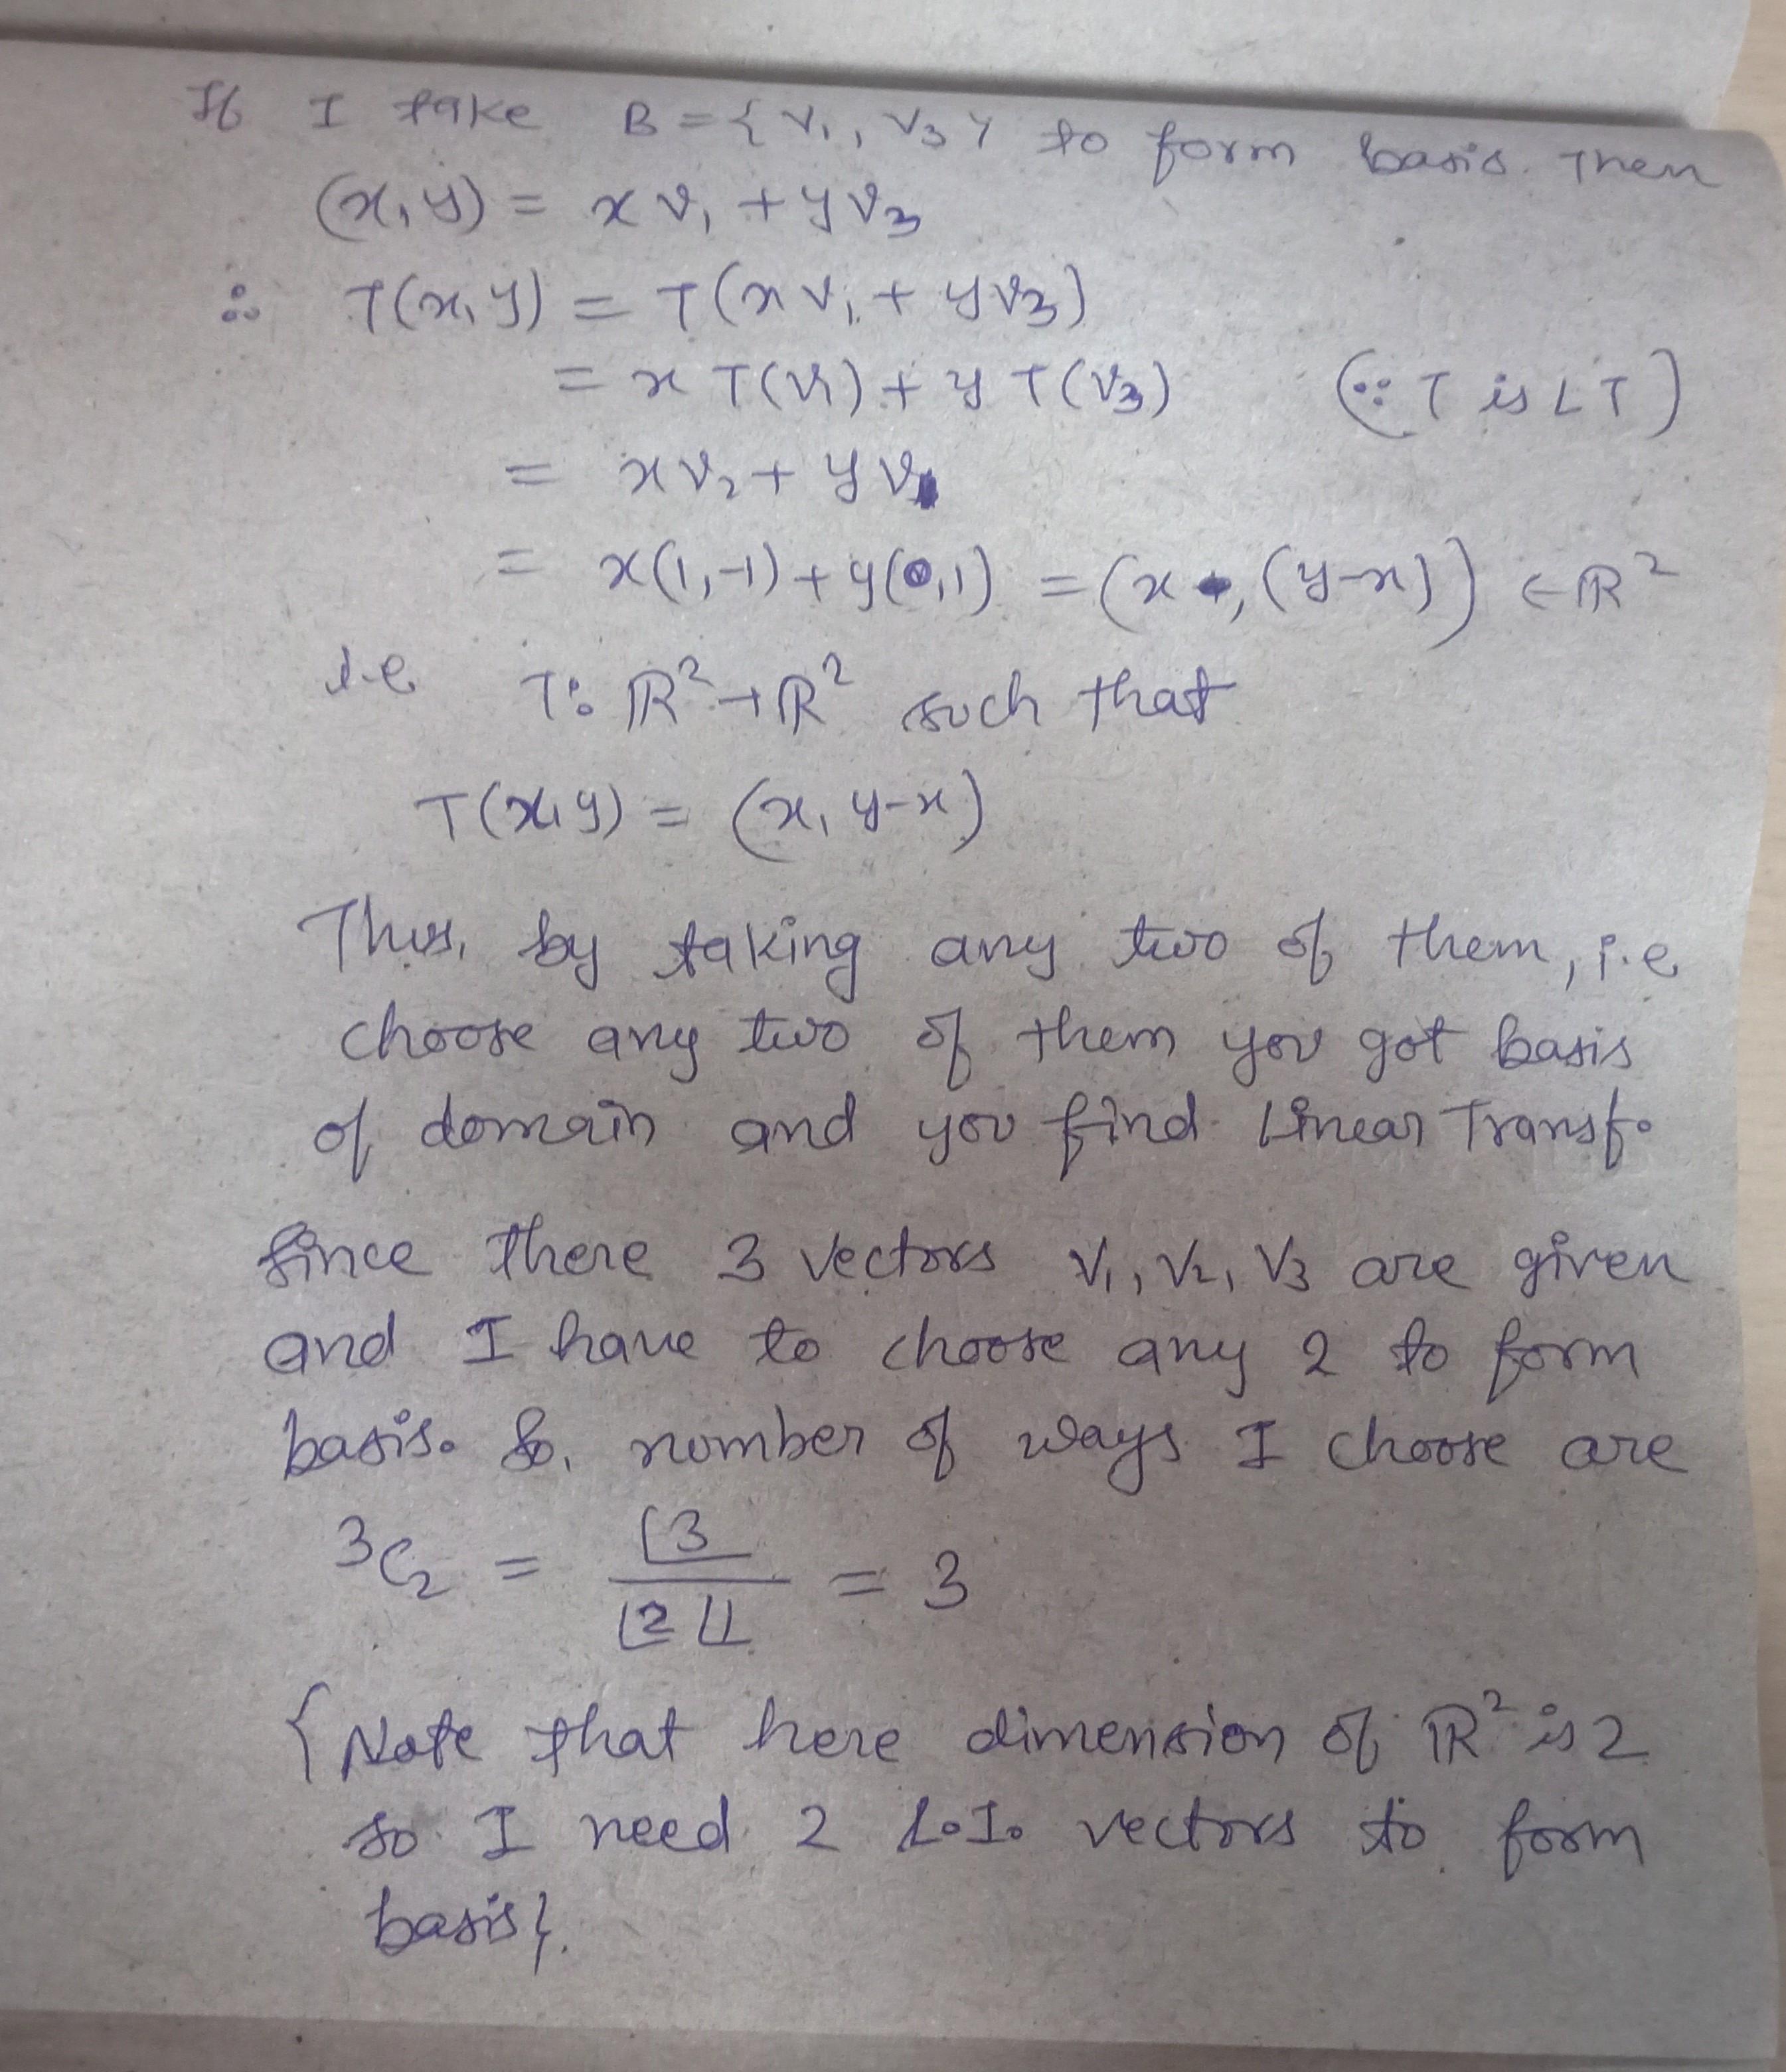 If I take B = { v₁, v₃ } to form basis. Then
(x, y) = x v₁ + y v₃
∴ T(x, y) = T(x v₁ + y v₃)
= x T(v₁) + y T(v₃) (∵ T is LT)
= x v₂ + y v
= x(1, -1) + y(0, 1) = (x , (y-x)) ∈ ℝ²
i.e T: ℝ² → ℝ² such that
T(x, y) = (x, y-x)
Thus, by taking any two of them, i.e
choose any two of them you got basis
of domain and you find Linear Transf.
Since there 3 vectors v₁, v₂, v₃ are given
and I have to choose any 2 to form
basis. So, number of ways I choose are
³C₂ = |3 / |2 |1 = 3
{ Note that here dimension of ℝ² is 2
so I need 2 L.I. vectors to form
basis}.